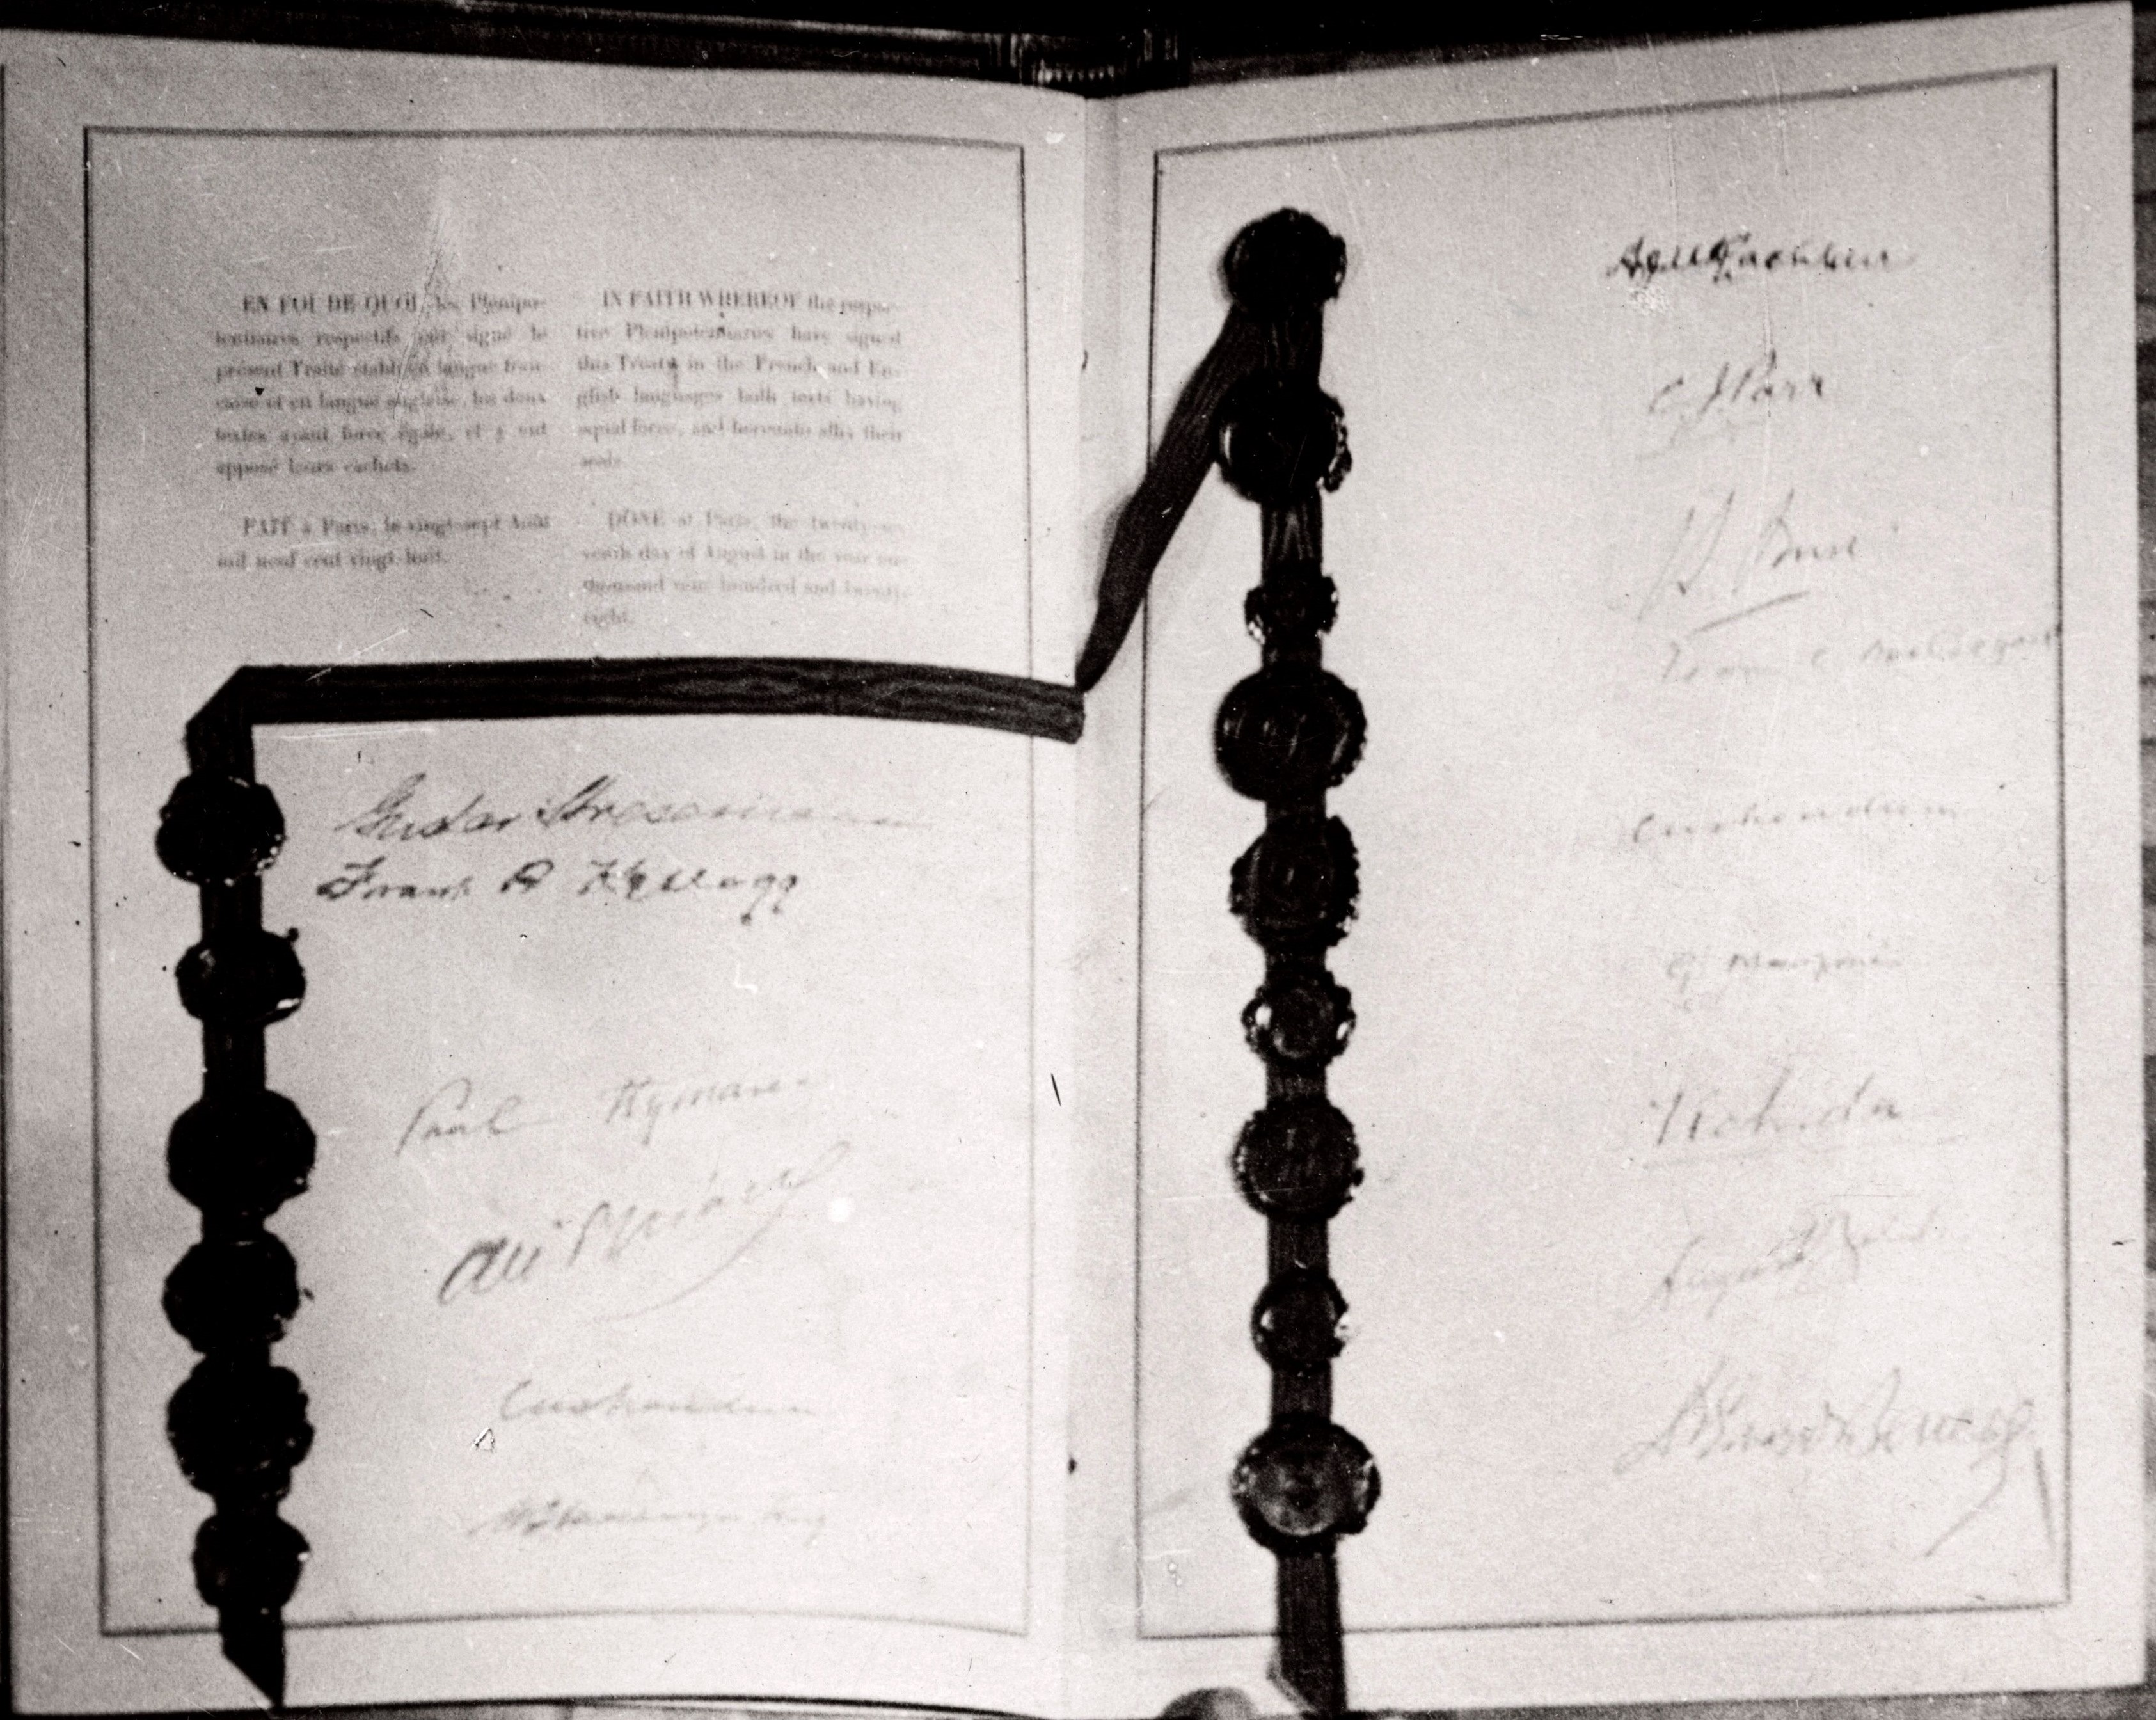 EN FOI DE QUOI, les Plénipo-
tentiaires respectifs ont signé le
présent Traité établi en langue fran-
çaise et en langue anglaise, les deux
textes ayant force égale, et y ont
apposé leurs cachets.
FAIT à Paris, le vingt-sept Août
mil neuf cent vingt-huit.
IN FAITH WHEREOF the respec-
tive Plenipotentiaries have signed
this Treaty in the French and En-
glish languages both texts having
equal force, and hereunto affix their
seals.
DONE at Paris, the twenty-se-
venth day of August in the year one
thousand nine hundred and twenty-
eight.
Gustav Stresemann
Frank B Kellogg
Paul Hymans
Ari Briand
Cushendun
W L Mackenzie King
C J Parr
Cushendun
Uchida